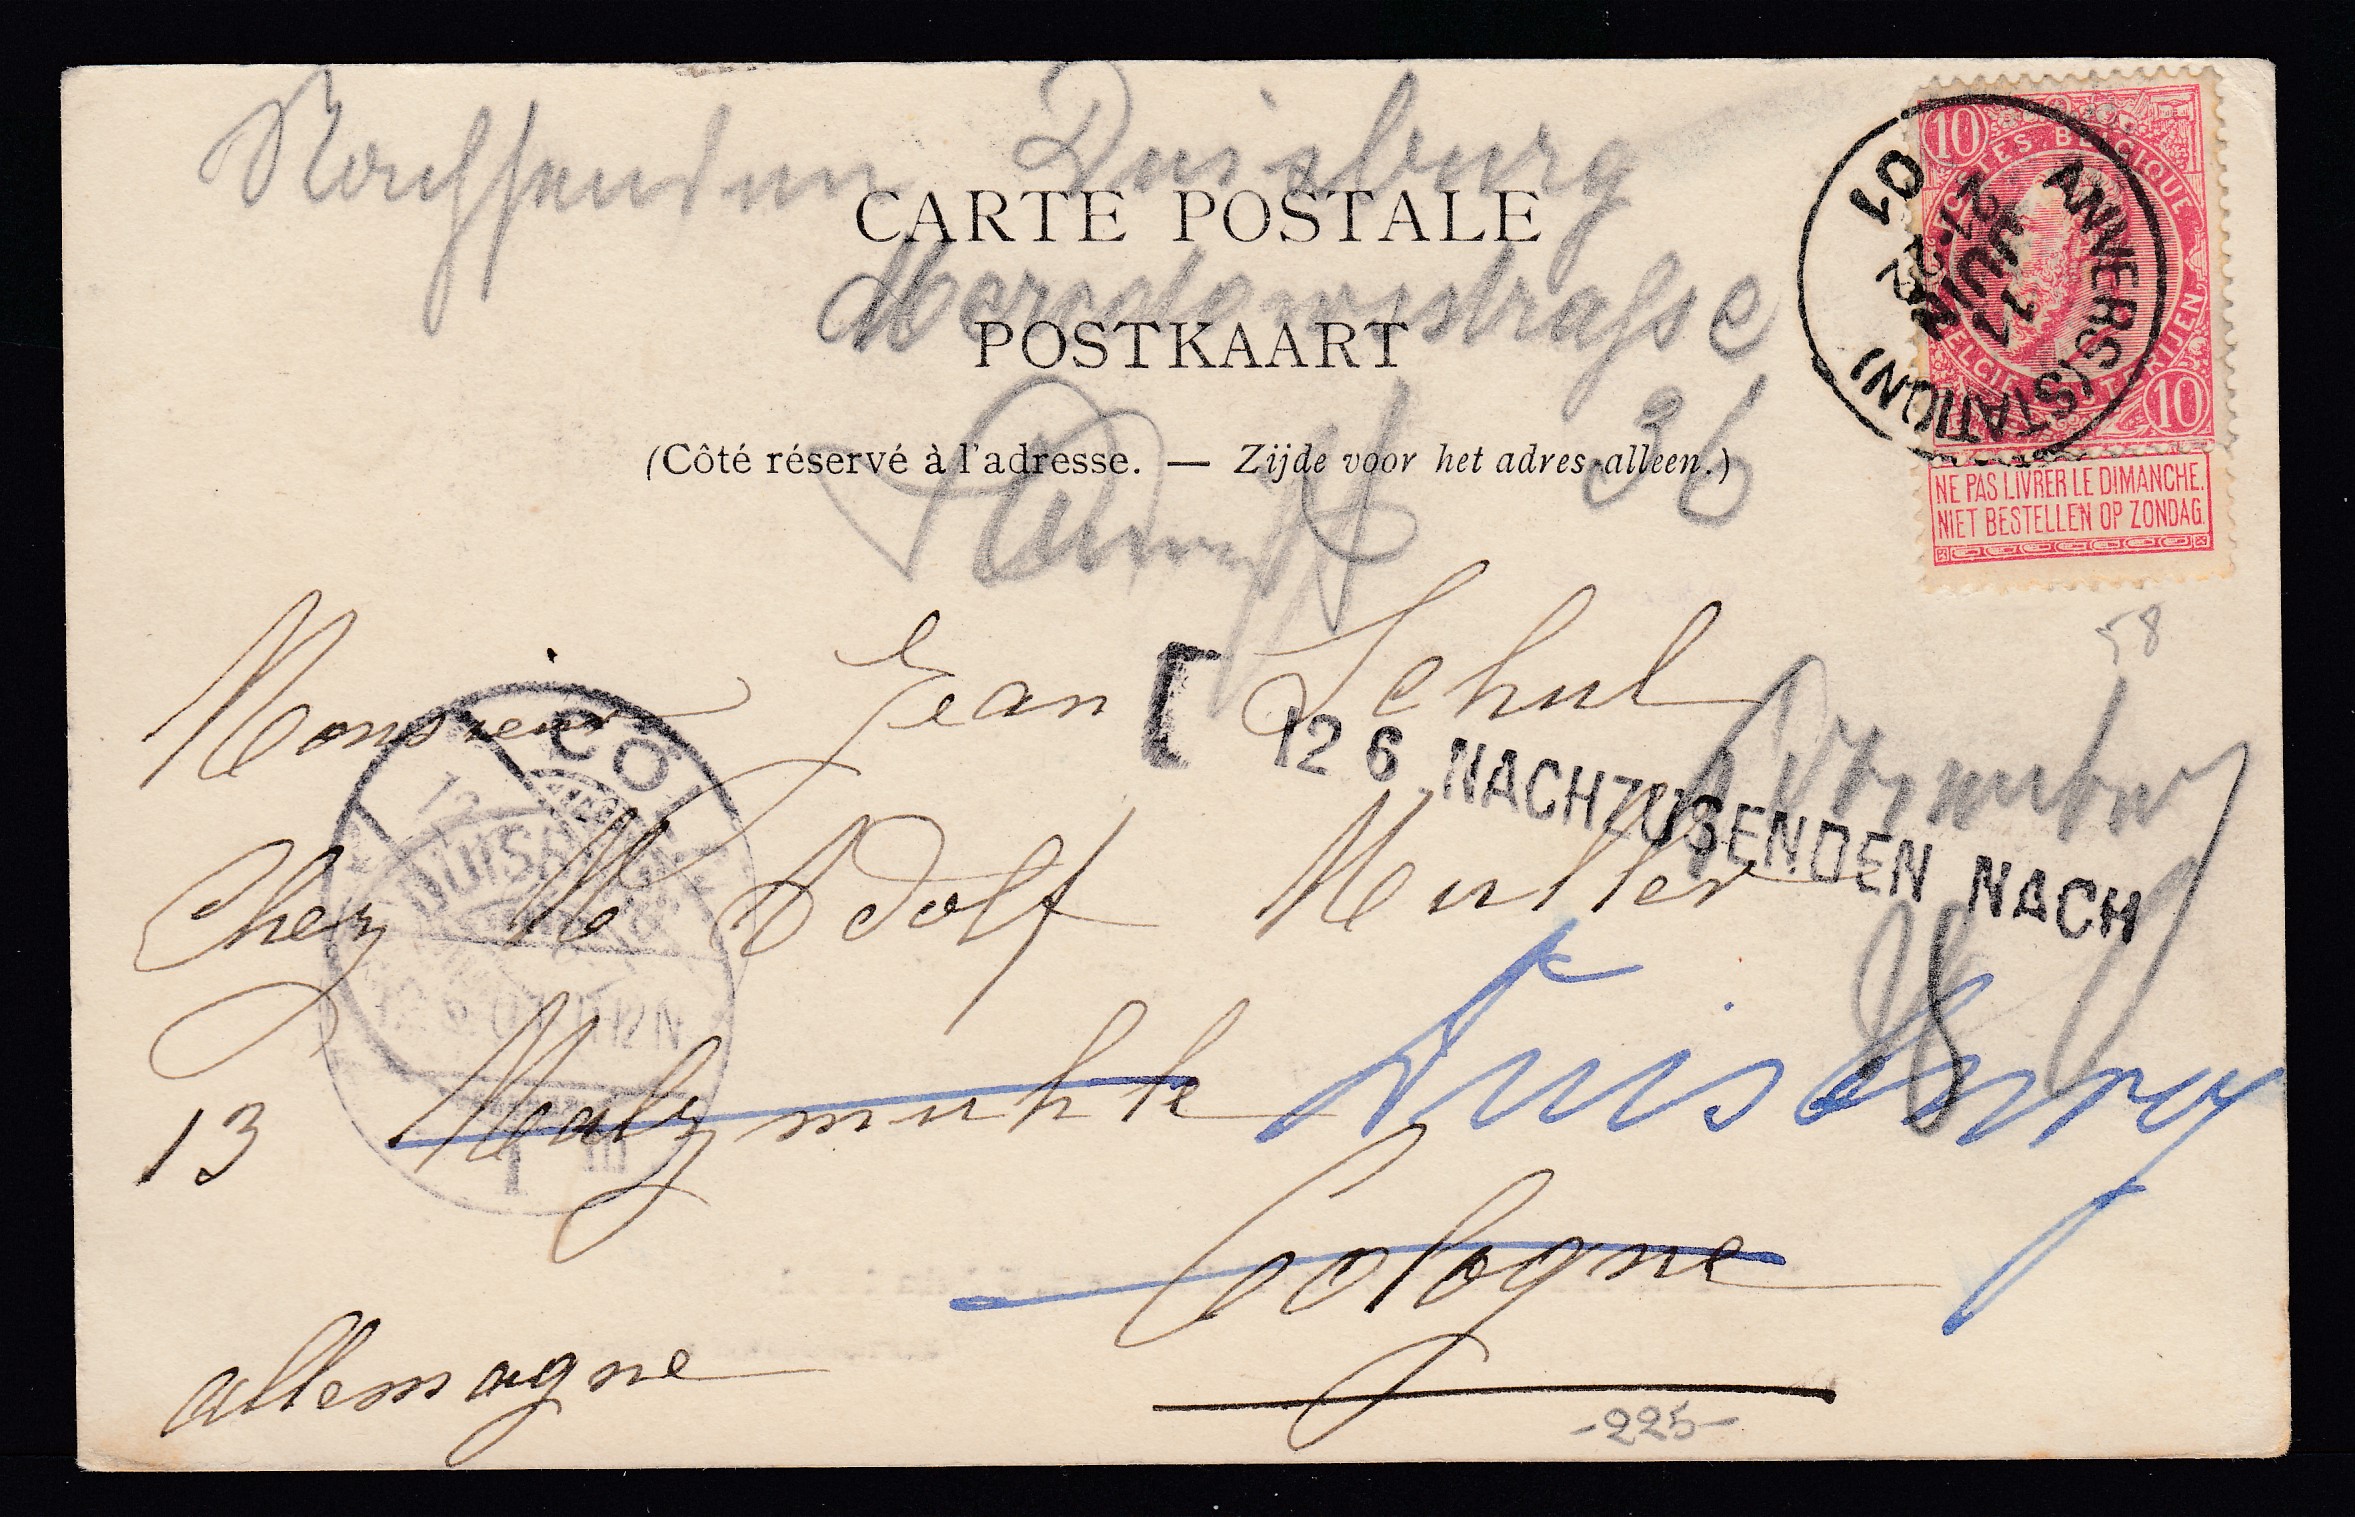 Nachsenden Duisburg
CARTE POSTALE
POSTKAART
(Côté réservé à l'adresse. — Zijde voor het adres alleen.)
36
10
POSTES. BELGIQUE
BELGIE POSTERIJEN
10
NE PAS LIVRER LE DIMANCHE.
NIET BESTELLEN OP ZONDAG.
ANVERS (STATION)
11
JUIN
01
58
Monsieur Jean Schul
[ 12 6 NACHZUSENDEN NACH
Chez Mr Adolf Muller
DUISBURG
13 Malzmuhle
Duisburg
Cologne
allemagne
-225-